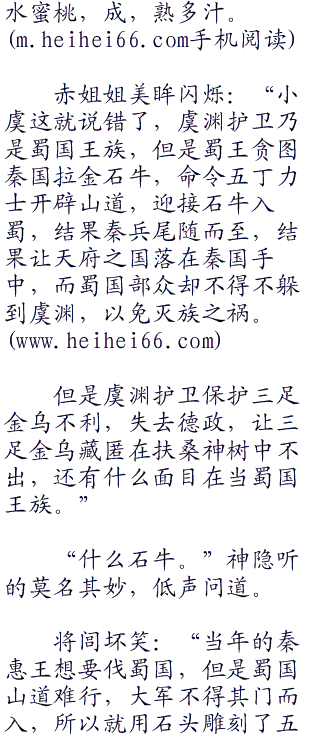 水蜜桃，成，熟多汁。
(m.heihei66.com手机阅读)
赤姐姐美眸闪烁：“小
虞这就说错了，虞渊护卫乃
是蜀国王族，但是蜀王贪图
秦国拉金石牛，命令五丁力
士开辟山道，迎接石牛入
蜀，结果秦兵尾随而至，结
果让天府之国落在秦国手
中，而蜀国部众却不得不躲
到虞渊，以免灭族之祸。
(www.heihei66.com)
但是虞渊护卫保护三足
金乌不利，失去德政，让三
足金乌藏匿在扶桑神树中不
出，还有什么面目在当蜀国
王族。”
“什么石牛。”神隐听
的莫名其妙，低声问道。
将闾坏笑：“当年的秦
惠王想要伐蜀国，但是蜀国
山道难行，大军不得其门而
入，所以就用石头雕刻了五